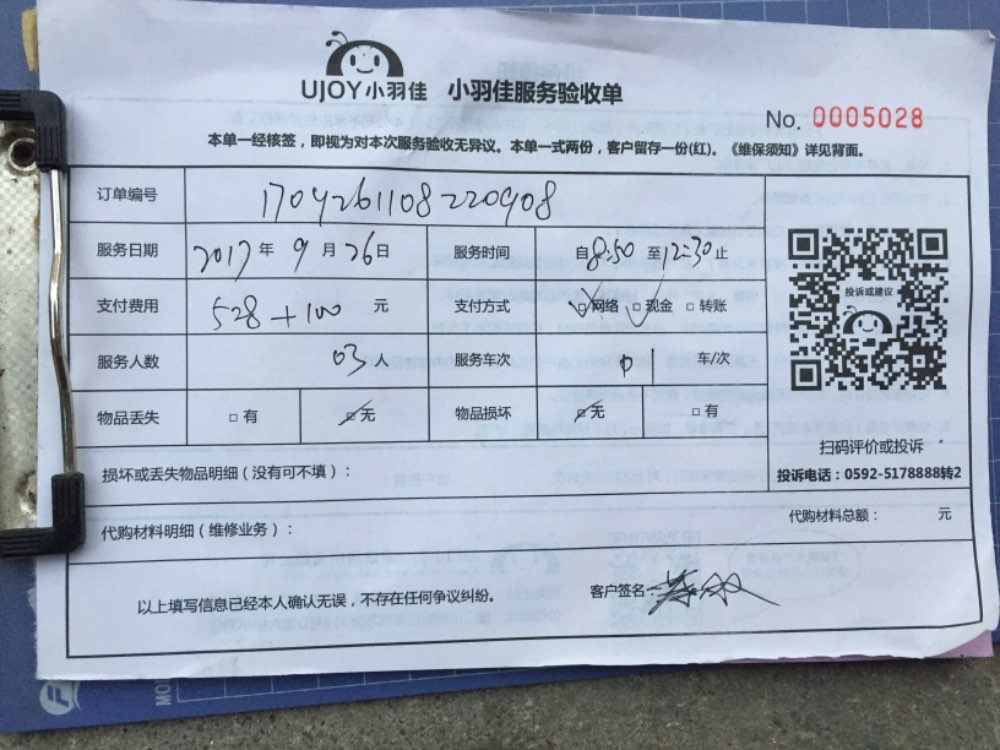 UJOY小羽佳 小羽佳服务验收单
No. 0005028
本单一经核签，即视为对本次服务验收无异议。本单一式两份，客户留存一份(红)。《维保须知》详见背面。
订单编号 1709261108220908
服务日期 2017年 9月 26日 服务时间 自8:50至12:30止
支付费用 528+100 元 支付方式 网络 现金 转账
投诉或建议
服务人数 03人 服务车次 01 车/次
物品丢失 有 无 物品损坏 无 有
扫码评价或投诉
损坏或丢失物品明细（没有可不填）：
投诉电话：0592-5178888转2
代购材料明细（维修业务）： 代购材料总额： 元
以上填写信息已经本人确认无误，不存在任何争议纠纷。 客户签名：